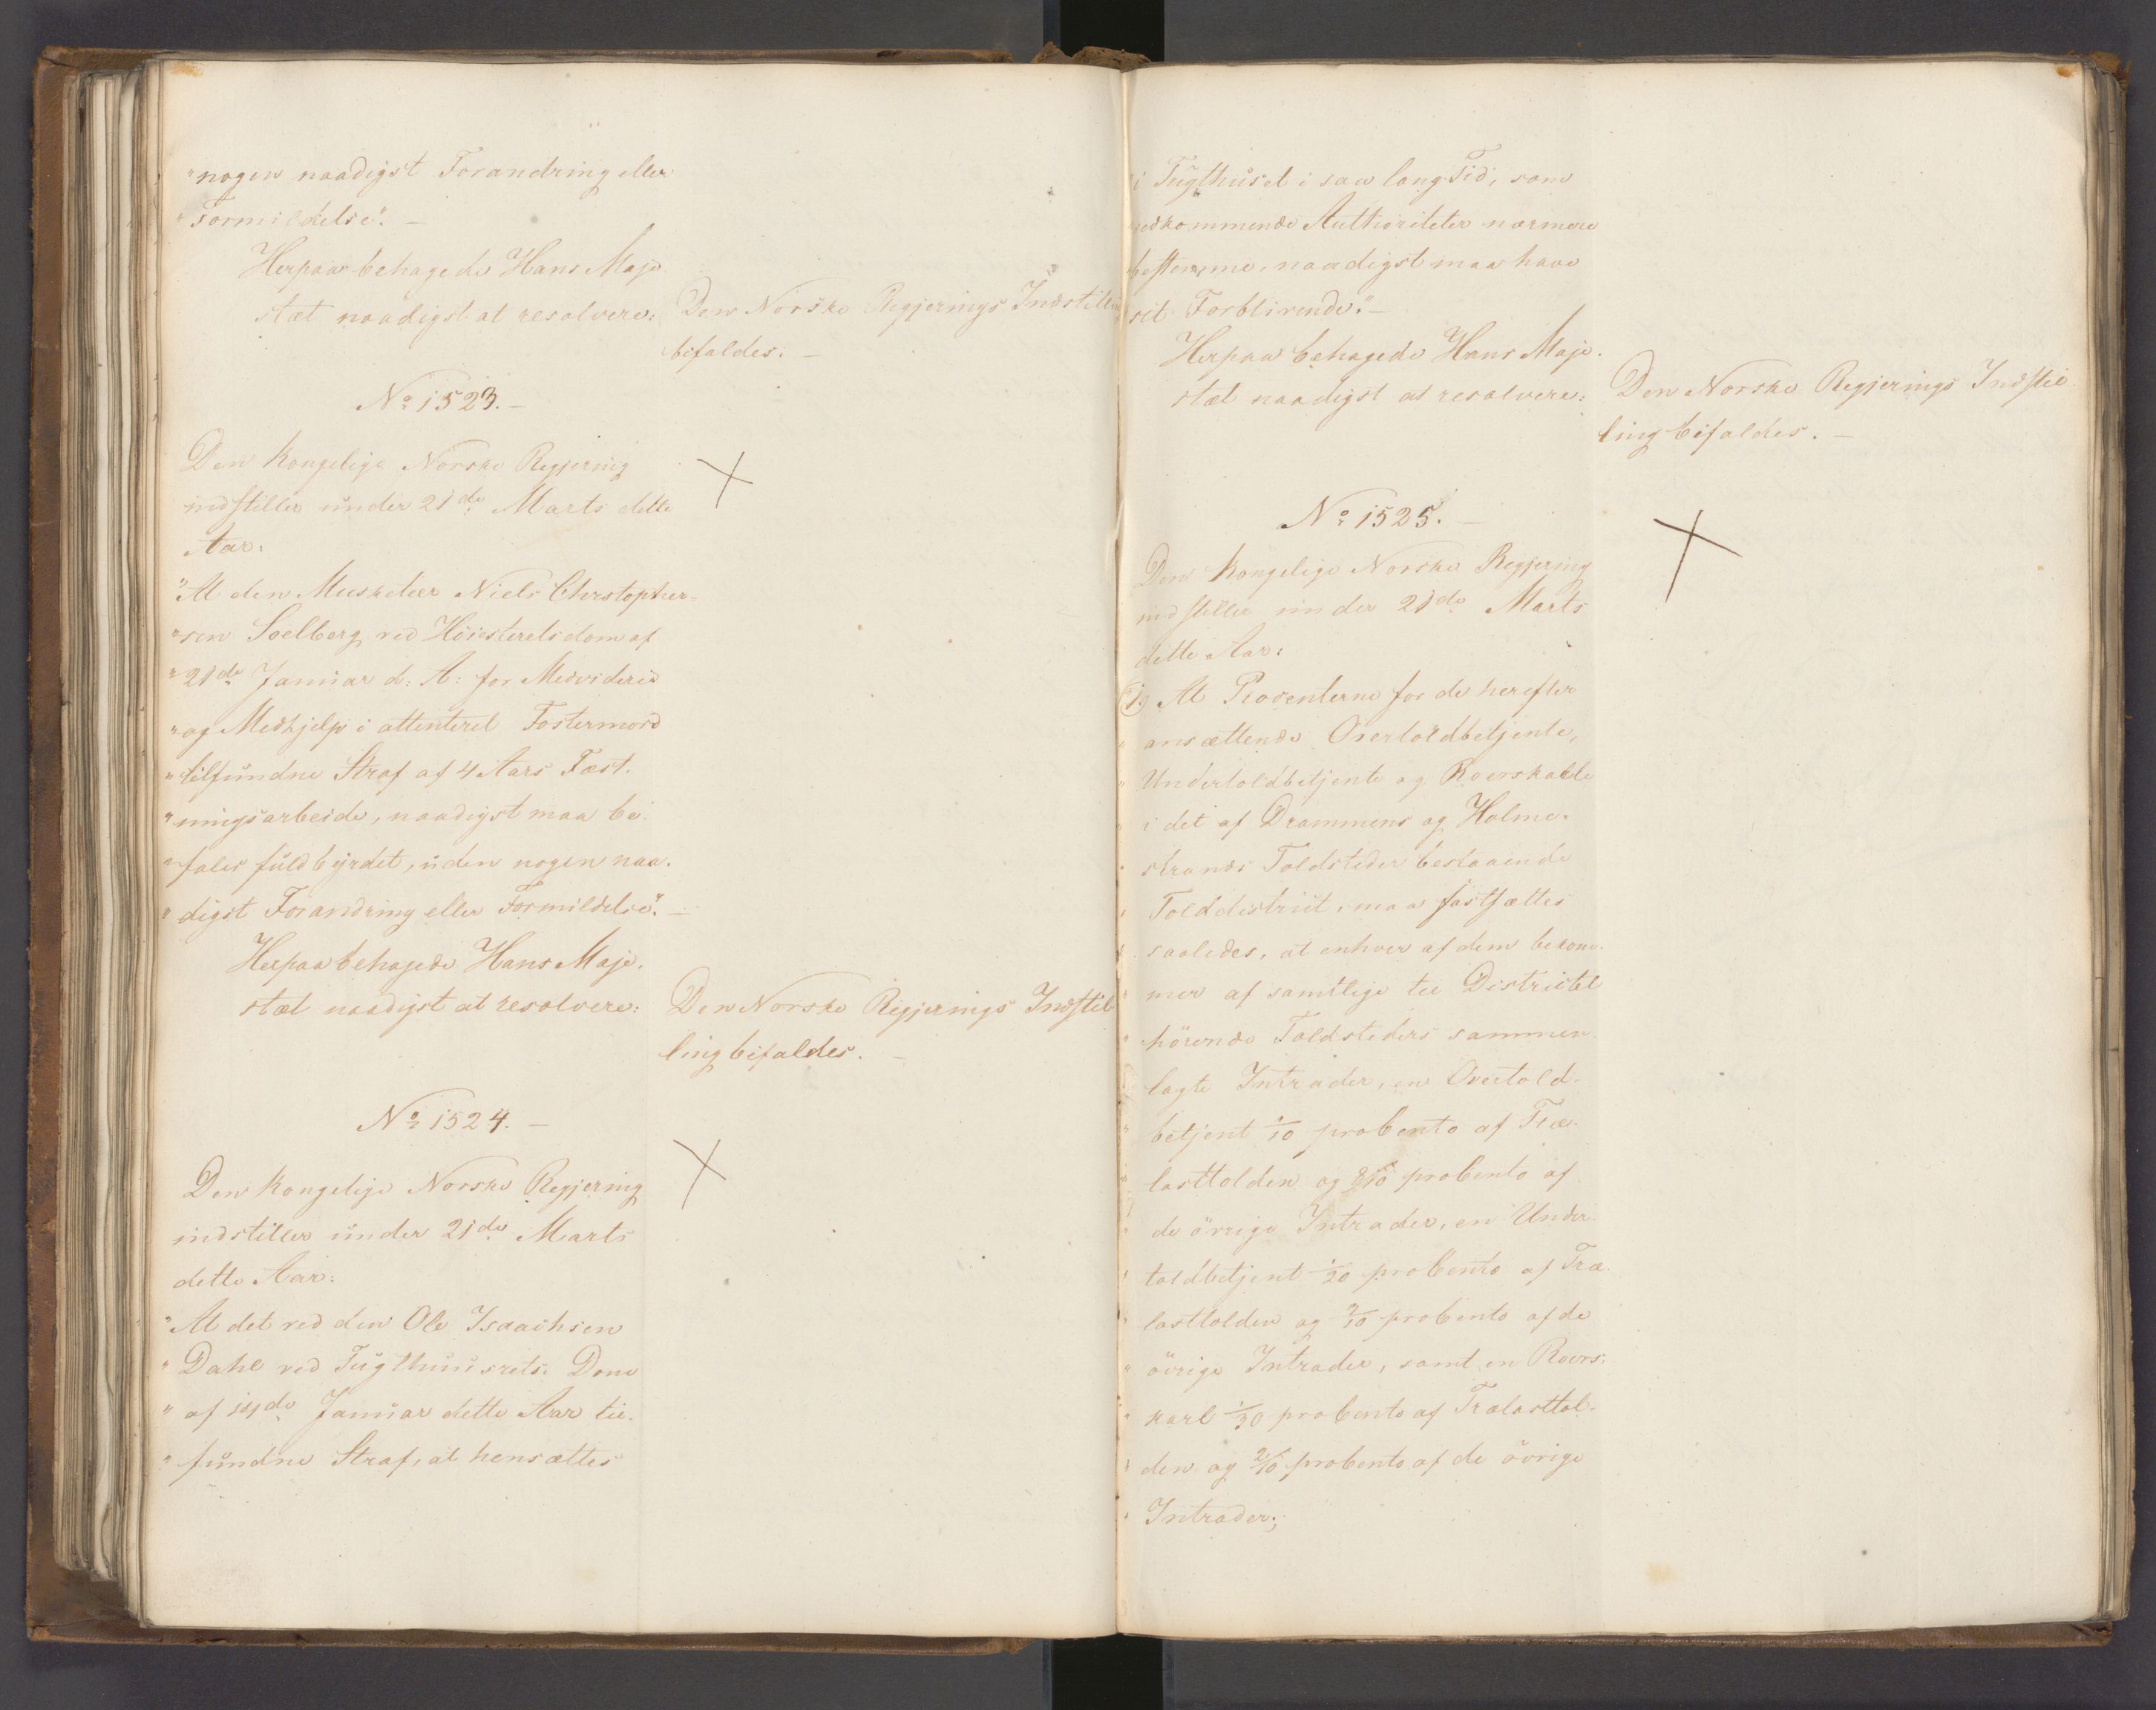 "nogen naadigst Forandring eller
"Formildelse". —
Herpaa behagede Hans Maje-
stæt naadigst at resolvere:
Den Norske Regjerings Indstilling
bifaldes. —
No 1523. —
Den Kongelige Norske Regjering
indstiller under 21de Marts dette
Aar:
"At den Musketeer Niels Christopher-
"sen Soelberg ved Höiesteretsdom af
"21de Januar d: A: for Medvideri
"og Medhjelp i attenteret Fostermord
"tilfundne Straf af 4 Aars Fæst-
"ningsarbeide, naadigst maa be-
"fales fuldbyrdet, uden nogen naa-
"digst Forandring eller Formildelse". —
Herpaa behagede Hans Maje-
stæt naadigst at resolvere:
Den Norske Regjerings Indstil-
ling bifaldes. —
No 1524. —
Den Kongelige Norske Regjering
indstiller under 21de Marts
dette Aar:
"At det ved den Ole Isaachsen
"Dahl ved Tugthuusrets Dom
"af 14de Januar dette Aar til-
"fundne Straf, at hensættes
i Tugthuset i saa lang Tid, som
vedkommende Authoriteter nærmere
bestemme, naadigst maa have
sit Forblivende". —
Herpaa behagede Hans Maje-
stæt naadigst at resolvere:
Den Norske Regjerings Indstil-
ling bifaldes. —
No 1525. —
Den Kongelige Norske Regjering
indstiller under 21de Marts
dette Aar:
"1.) At Procenterne for de herefter
"ansættende Overtoldbetjente,
"Undertoldbetjente og Roerskarle
"i det af Drammens og Holme-
"strands Toldsteder bestaaende
"Tolddistrict, maa fastsættes
"saaledes, at enhver af dem bekom-
"mer af samtlige til Districtet
"hörende Toldsteders sammen-
"lagte Intrader, en Overtold-
"betjent 1/10 procento af Træ-
"lasttolden og 8/10 procento af
"de övrige Intrader, en Under-
"toldbetjent 1/20 procento af Træ-
"lasttolden og 2/10 procento af de
"övrige Intrader, samt en Roers-
"karl 1/30 procento af Trælasttol-
"den og 2/10 procento af de övrige
"Intrader;